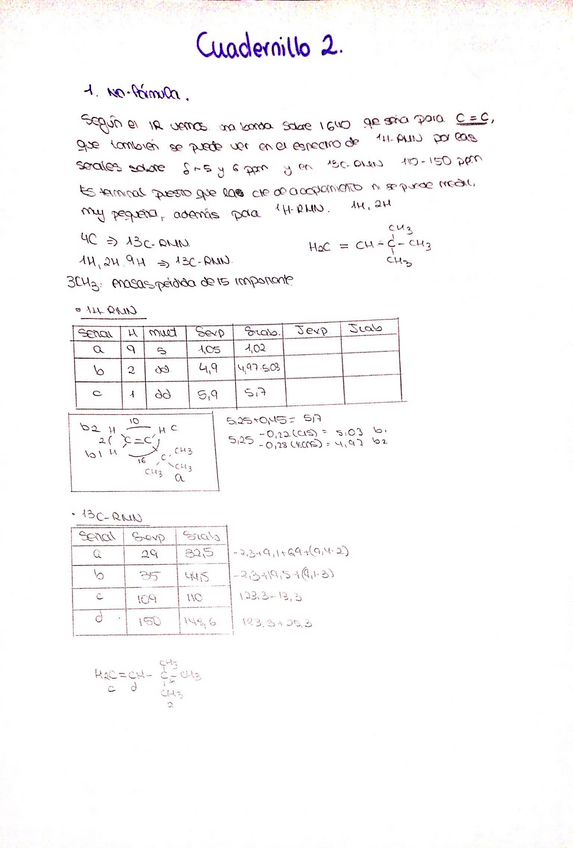 Cuadernillo 2.
1. No-fórmula.
Según el IR vemos una banda sobre 1640 que sería para C=C,
que también se puede ver en el espectro de 1H-RMN por las
señales sobre δ~5 y 6 ppm y en 13C-RMN 110-150 ppm
Es terminal puesto que la cte de acoplamiento n se puede medir,
muy pequeña, además para 1H-RMN. 1H, 2H
4C => 13C-RMN
1H, 2H 9H => 13C-RMN
3CH3: masas pérdida de 15 importante
CH3
H2C = CH - C - CH3
CH3
• 1H RMN
Señal H mult δexp δcab. Jexp Jcab
a 9 s 1,05 1,02
b 2 dd 4,9 4,97-5,03
c 1 dd 5,9 5,7
b2 H 10 H C
2( C=C
b1 H 16 C CH3
CH3 CH3
a
5,25+0,45 = 5,7
5,25 -0,22 (cis) = 5,03 b1
-0,28 (trans) = 4,97 b2
• 13C-RMN
Señal δexp δcab
a 29 32,5 -2,3+9,1+6,9+(9,4·2)
b 35 44,5 -2,3+19,5+(9,1·3)
c 109 110 123,3-13,3
d 150 148,6 123,3+25,3
CH3
H2C=CH-C-CH3
c d b
CH3
a